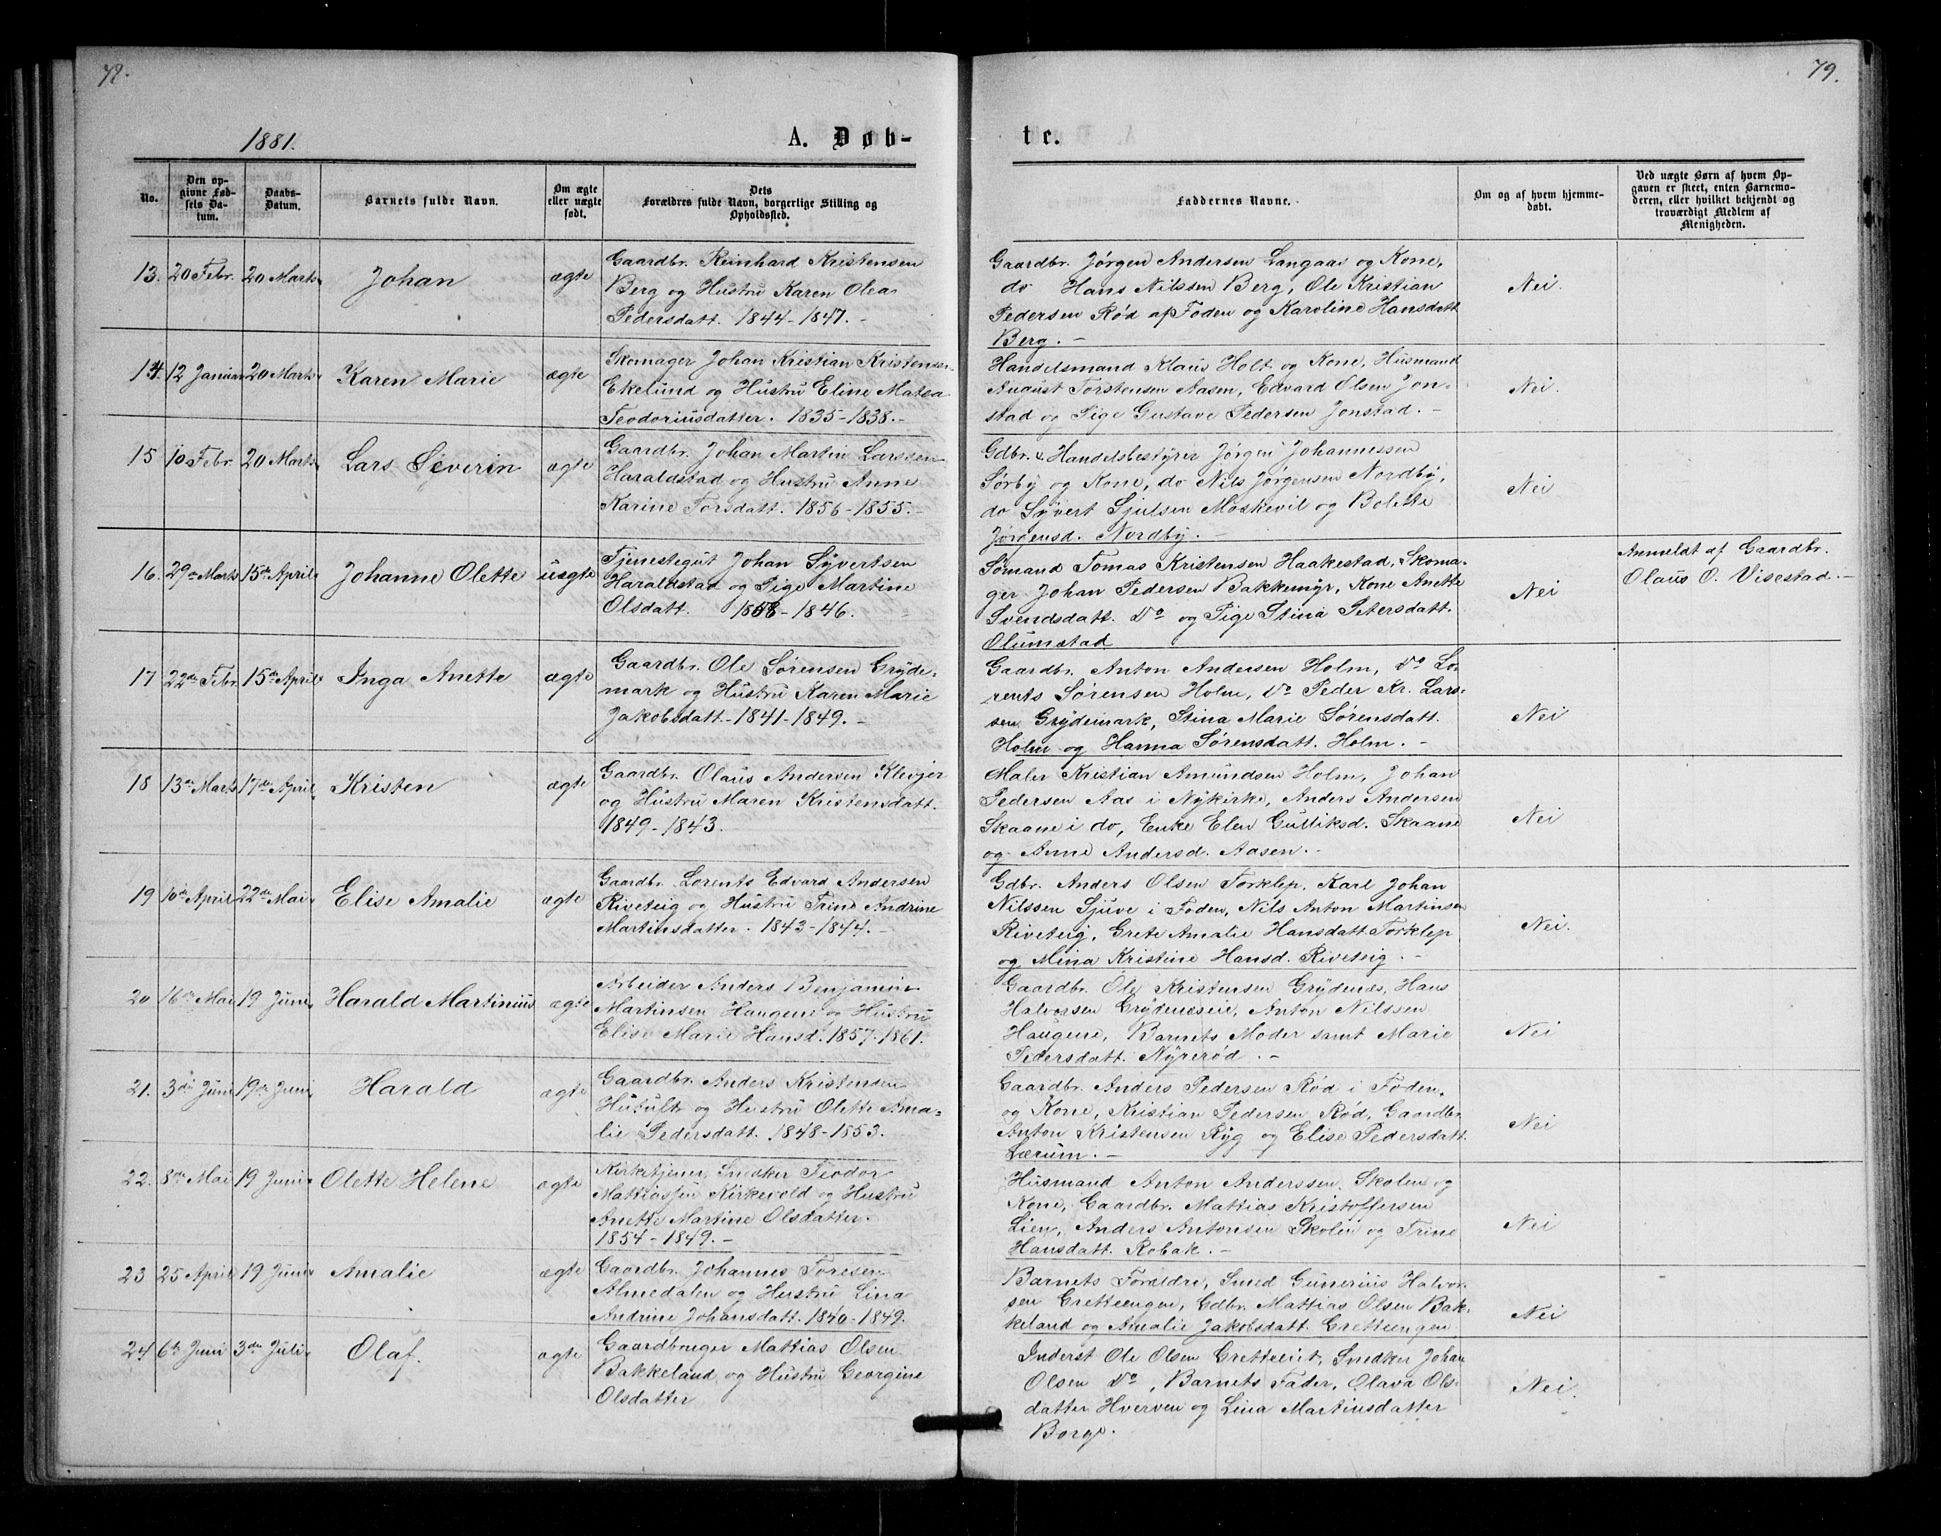 78.
1881.
A. Døb-
No.
Den op-
givne Fød-
sels Da-
tum.
Daabs-
Datum.
Barnets fulde Navn.
Om ægte
eller uægte
født.
Dets
Forældres fulde Navn, borgerlige Stilling og
Opholdssted.
13. 20 Febr. 20 Marts Johan ægte
Gaardbr. Reinhard Kristensen
Berg og Hustru Karen Olea
Pedersdatt. 1844-1847.-
14. 12 Januar 20 Marts Karen Marie ægte
Skomager Johan Kristian Kristensen
Ekelund og Hustru Eline Matea
Teodoriusdatter. 1835-1838.-
15 10 Febr. 20 Marts Lars Severin ægte
Gaardbr. Johan Martin Larssen
Haraldstad og Hustru Anne
Karine Torsdatt. 1856-1855.-
16. 29de Marts 15de April Johanne Olette uægte
Tjenestegut Johan Syvertsen
Haraldstad og Pige Martine
Olsdatt. 1858-1846.
17 22de Febr. 15de April Inga Anette ægte
Gaardbr. Ole Sørensen Gryde-
mark og Hustru Karen Marie
Jakobsdatt. 1841-1849.-
18 13de Marts 17de April Kristen ægte
Gaardbr. Olaus Andersen Klevjer
og Hustru Maren Kristensdatt.
1849-1843.
19 10de April 22de Mai Elise Amalie ægte
Gaardbr. Lorents Edvard Andersen
Riveteig og Hustru Trine Andrine
Martinsdatter. 1843-1844.-
20 16de Mai 19 Juni Harald Martinius ægte
Arbeider Anders Benjamin
Martinsen Haugene og Hustru
Elise Marie Hansd. 1857-1861.
21. 3de Juni 19de Juni Harald ægte
Gaardbr. Anders Kristensen
Hutult og Hustru Olette Ama-
lie Pedersdatt. 1848-1853.
22. 8de Mai 19 Juni Olette Helene ægte
Kirketjener, Snedker Teodor
Mattiassen Kirkevold og Hustru
Anette Martine Olsdatter.
1854-1849.-
23 25 April 19 Juni Amalie ægte
Gaardbr. Johannes Toresen
Almedalen og Hustru Lina
Andrine Johansdatt. 1840-1849.
24 6te Juni 3de Juli Olaf. ægte
Gaardbruger Mattias Olsen
Bakkeland og Hustru Georgine
Olsdatter
79.
te.
Faddernes Navne.
Om og af hvem hjemme-
døbt.
Ved uægte Børn af hvem Op-
gaven er skeet, enten Barnemo-
deren, eller hvilket bekjendt og
troværdigt Medlem af
Menigheden.
Gaardbr. Jørgen Andersen Langaas og Kone,
do Hans Nilssen Berg, Ole Kristian
Pedersen Rød af Foden og Karoline Hansdatt
Berg.-
Nei.
Handelsmand Klaus Holt og Kone, Husmand
August Torstensen Aasen, Edvard Olsen Jon-
stad og Pige Gustave Pedersen Jonstad.-
Nei.
Gdbr. & Handelsbestyrer Jørgen Johannessen
Sørby og Kone, do Nils Jørgensen Nordby,
do Syvert Sjulsen Moskevil og Bolette
Jørgensd. Nordby.-
Nei
Sømand Tomas Kristensen Haakestad, Skoma-
ger Johan Pedersen Bakkemyr, Kone Anette
Svendsdatt. Do og Pige Stina Petersdatt.
Olumstad
Nei
Anmeldt af Gaardbr.
Olaus O. Visestad.-
Gaardbr. Anton Andersen Holm, do Lo-
rents Sørensen Holm, do Peder Kr. Lars-
sen Grydemark, Stina Marie Sørensdatt.
Holm og Hanna Sørensdatt. Holm.-
Nei
Maler Kristian Amundsen Holm, Johan
Pedersen Aas i Nykirke, Anders Andersen
Skaane i do, Enke Elen Gulliksd. Skaane
og Anne Andersd. Aasen.-
Nei
Gdbr. Anders Olsen Torklep, Karl Johan
Nilssen Sjuve i Foden, Nils Anton Martinsen
Riveteig, Grete Amalie Hansdatt Torklep
og Mina Kristine Hansd. Riveteig.-
Nei.
Gaardbr. Ole Kristensen Grydenæs, Hans
Halvorsen Grydenæseie, Anton Nilssen
Haugene, Barnets Moder samt Marie
Pedersdatt. Nyrerød.-
Nei
Gaardbr. Anders Pedersen Rød i Foden,
og Kone, Kristian Pedersen Rød, Gaardbr.
Anton Kristensen Ryg og Elise Pedersdatt.
Lærum.-
Nei
Husmand Anton Anderssen Skolen og
Kone, Gaardbr. Mattias Kristoffersen
Lien, Anders Antonsen Skolen og Trine
Hansdatt. Robak.-
Nei
Barnets Forældre, Smed Gunerius Halvor-
sen Gretteengen, Gdbr. Mattias Olsen Bak-
keland og Amalie Jakobsdatt. Gretteengen
Nei
Inderst Ole Olsen Gretteeiet, Snedker Johan
Olsen Do, Barnets Fader, Olava Ols-
datter Hverven og Lina Martinsdatter
Borge.
Nei.